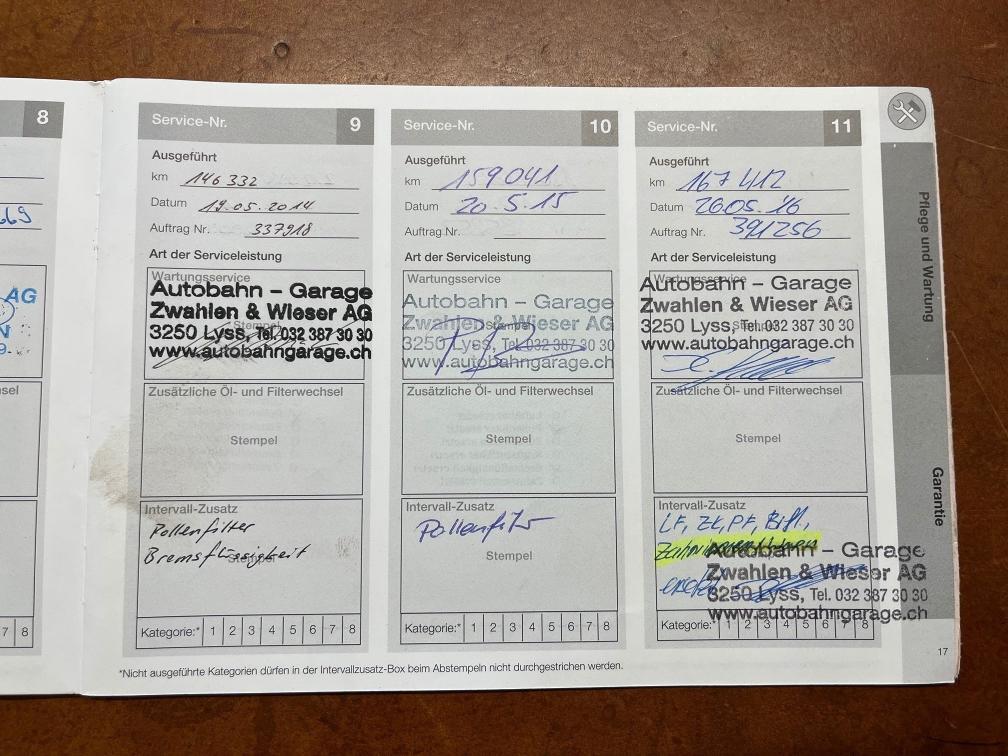 8
669
AG
N
9.-
sel
7 8
Service-Nr. 9
Ausgeführt
km 146 332
Datum 19.05.2014
Auftrag Nr. 337918
Art der Serviceleistung
Wartungsservice
Stempel
Autobahn – Garage
Zwahlen & Wieser AG
3250 Lyss, Tel. 032 387 30 30
www.autobahngarage.ch
Zusätzliche Öl- und Filterwechsel
Stempel
Intervall-Zusatz
Pollenfilter
Bremsflüssigkeit
Stempel
Kategorie:* 1 2 3 4 5 6 7 8
Service-Nr. 10
Ausgeführt
km 159 041
Datum 20.5.15
Auftrag Nr.
Art der Serviceleistung
Wartungsservice
Stempel
Autobahn – Garage
Zwahlen & Wieser AG
3250 Lyss, Tel. 032 387 30 30
www.autobahngarage.ch
Zusätzliche Öl- und Filterwechsel
Stempel
Intervall-Zusatz
Pollenfilter
Stempel
Kategorie:* 1 2 3 4 5 6 7 8
Service-Nr. 11
Ausgeführt
km 167 412
Datum 26.05.16
Auftrag Nr. 391256
Art der Serviceleistung
Wartungsservice
Stempel
Autobahn – Garage
Zwahlen & Wieser AG
3250 Lyss, Tel. 032 387 30 30
www.autobahngarage.ch
Zusätzliche Öl- und Filterwechsel
Stempel
Intervall-Zusatz
LF, ZK, PF, Bifl.,
ersetzt
Autobahn – Garage
Zwahlen & Wieser AG
3250 Lyss, Tel. 032 387 30 30
www.autobahngarage.ch
Kategorie:* 1 2 3 4 5 6 7 8
*Nicht ausgeführte Kategorien dürfen in der Intervallzusatz-Box beim Abstempeln nicht durchgestrichen werden.
Pflege und Wartung
Garantie
17